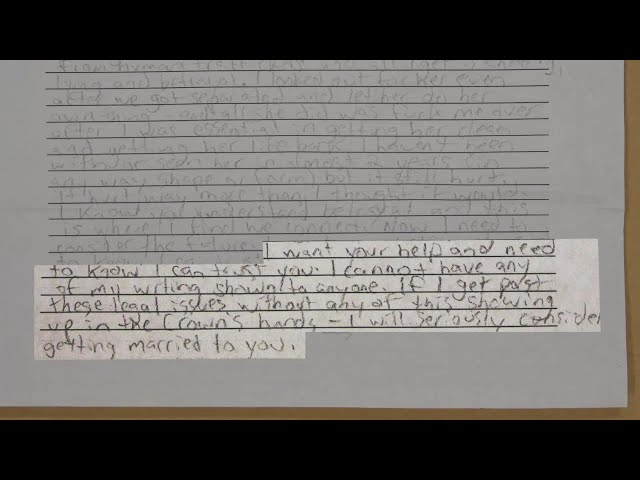 from human
lying and betrayal. I looked out for her even
after we got separated and let her do her
own thing - and all she did was fuck me over
after I was essential in getting her clean
and getting her life back. I haven't been
with/or seen her in almost 2 years (in
any way shape or form) but it still hurt.
It hurt way more than I thought it would.
I know you understand betrayal and this
is where I find we connect. Now I need to
the future I want your help and need
to know I can trust you. I cannot have any
of my writing shown to anyone. If I get past
these legal issues without any of this showing
up in the Crown's hands - I will seriously consider
getting married to you.